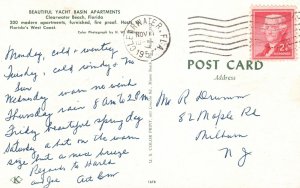 BEAUTIFUL YACHT BASIN APARTMENTS
Clearwater Beach, Florida
250 modern apartments, furnished, fire proof.
Florida's West Coast.
Color Photograph by
Monday, cold + wintery
Tuesday, cold, windy,
Sun
Wednesday warm no wind
Thursday rain 8 AM to 2 PM
Friday beautiful spring day
Saturday a bit on the warm
side but a nice breeze
Regards to
CLEARWATER, FLA.
NOV
195
2¢
POST CARD
Address
Mr R Drumm
82 Maple Rd
Millburn
N J
K